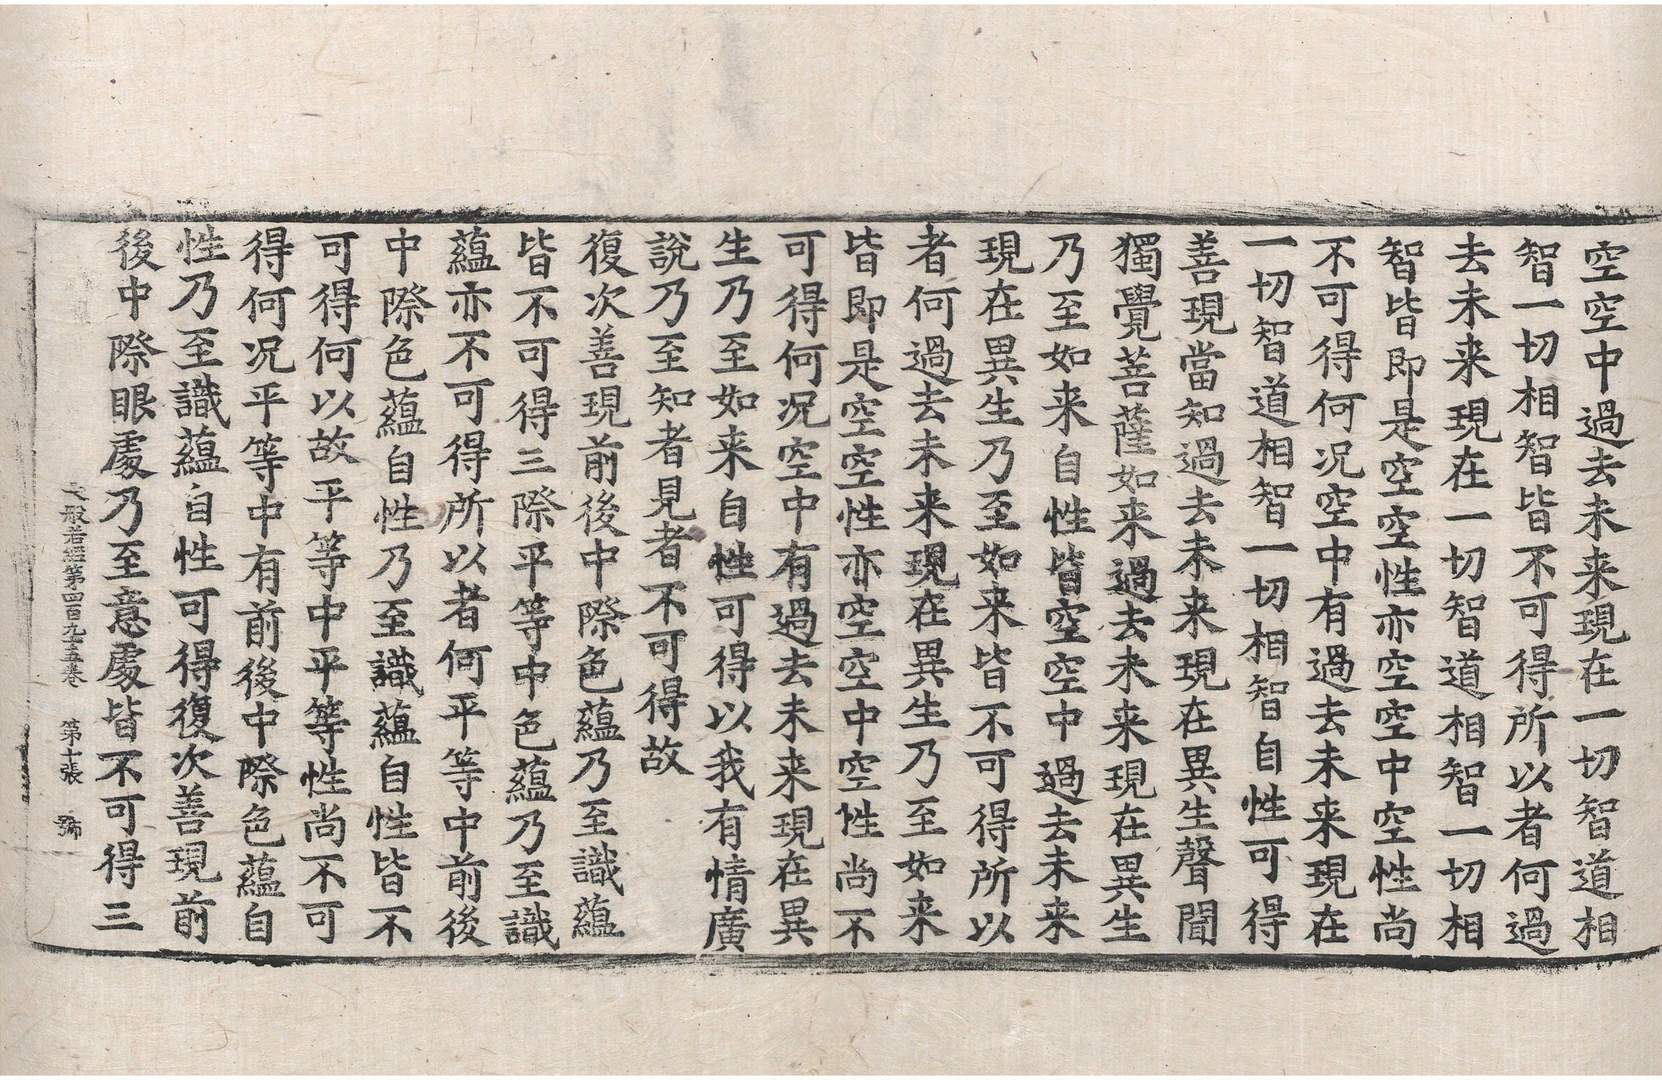 空空中過去未来現在一切智道相
智一切相智皆不可得所以者何過
去未来現在一切智道相智一切相
智皆即是空空性亦空空中空性尚
不可得何况空中有過去未来現在
一切智道相智一切相智自性可得
善現當知過去未来現在異生聲聞
獨覺菩薩如来過去未来現在異生
乃至如来自性皆空空中過去未来
現在異生乃至如来皆不可得所以
者何過去未来現在異生乃至如来
皆即是空空性亦空空中空性尚不
可得何况空中有過去未来現在異
生乃至如来自性可得以我有情廣
說乃至知者見者不可得故
復次善現前後中際色蘊乃至識蘊
皆不可得三際平等中色蘊乃至識
蘊亦不可得所以者何平等中前後
中際色蘊自性乃至識蘊自性皆不
可得何以故平等中平等性尚不可
得何况平等中有前後中際色蘊自
性乃至識蘊自性可得復次善現前
後中際眼處乃至意處皆不可得三
般若經第四百九十五卷 第十張 號